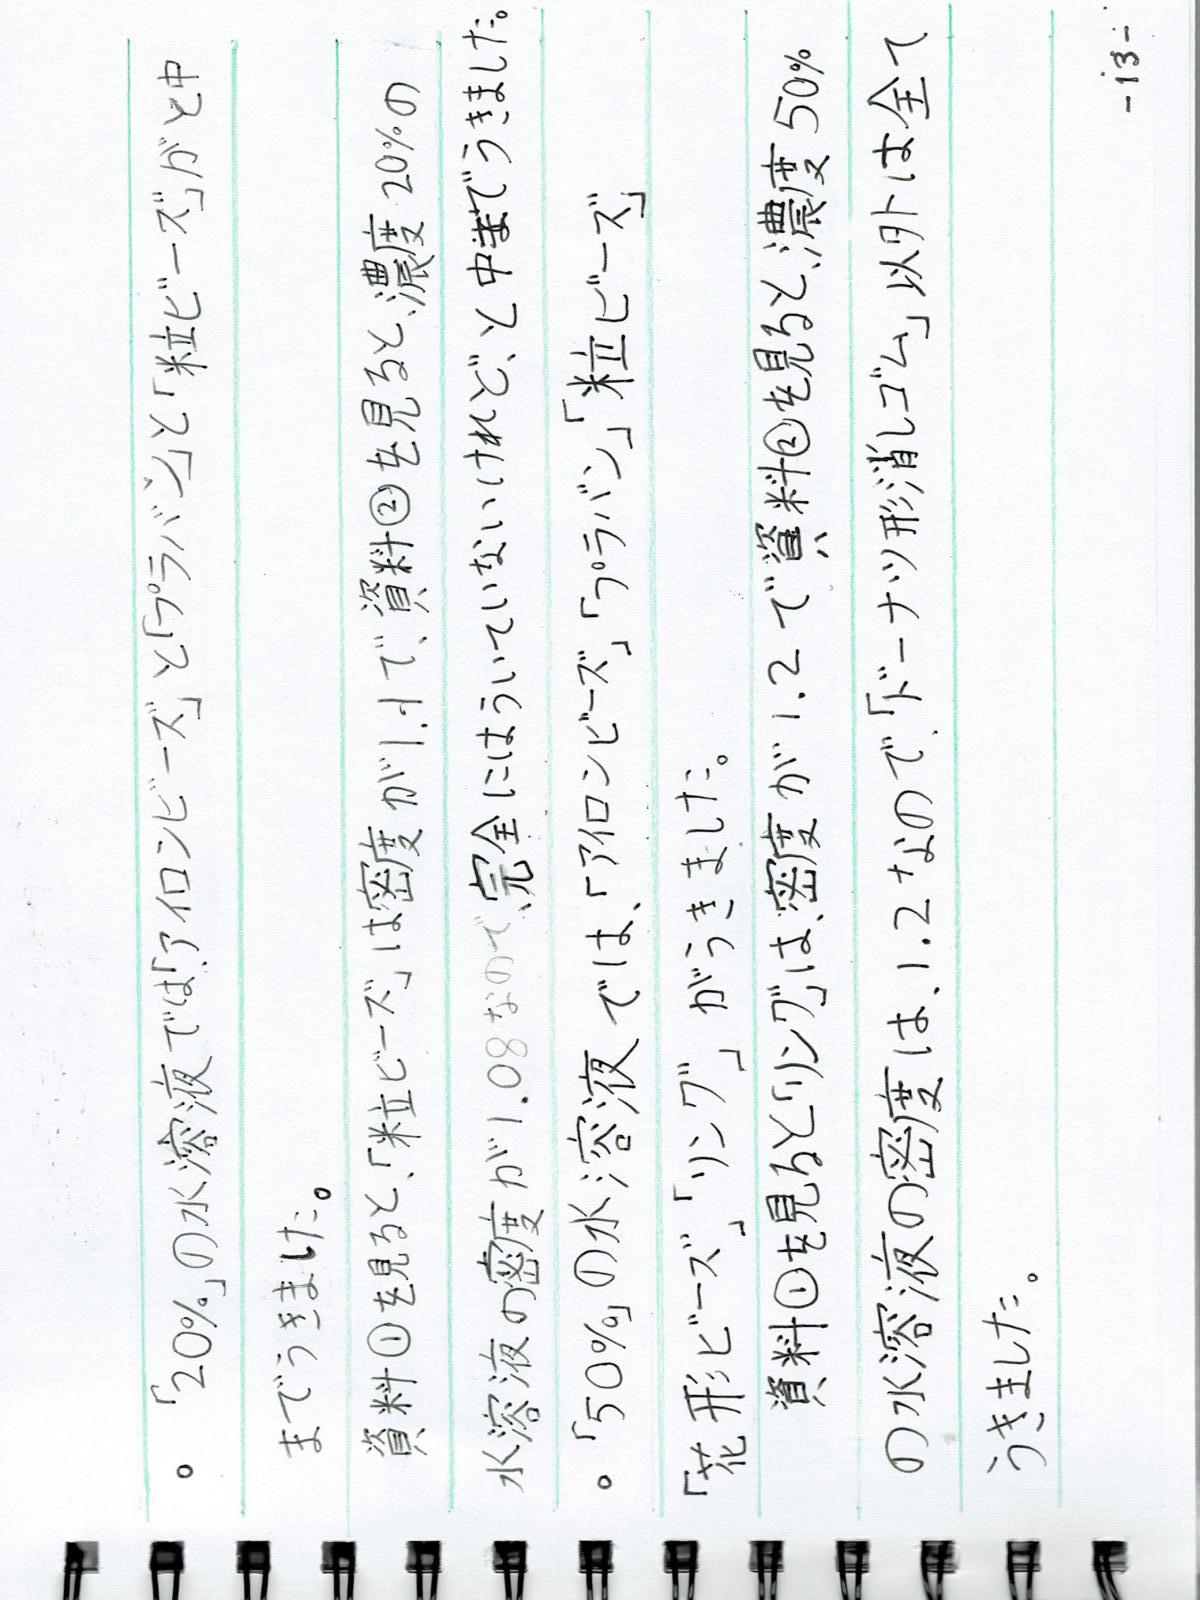 。「20%」の水溶液では「アイロンビーズ」と「プラバン」と「粒ビーズ」がと中
までうきました。
資料①を見ると、「粒ビーズ」は密度が1.1で、資料②を見ると、濃度20%の
水溶液の密度が1.08なので、完全にはういていないけれど、と中までうきました。
。「50%」の水溶液では、「アイロンビーズ」「プラバン」「粒ビーズ」
「花形ビーズ」「リング」がうきました。
資料①を見ると「リング」は、密度が1.2で資料②を見ると、濃度50%
の水溶液の密度は、1.2なので「ドーナツ形消しゴム」以外は全て
うきました。
-13-